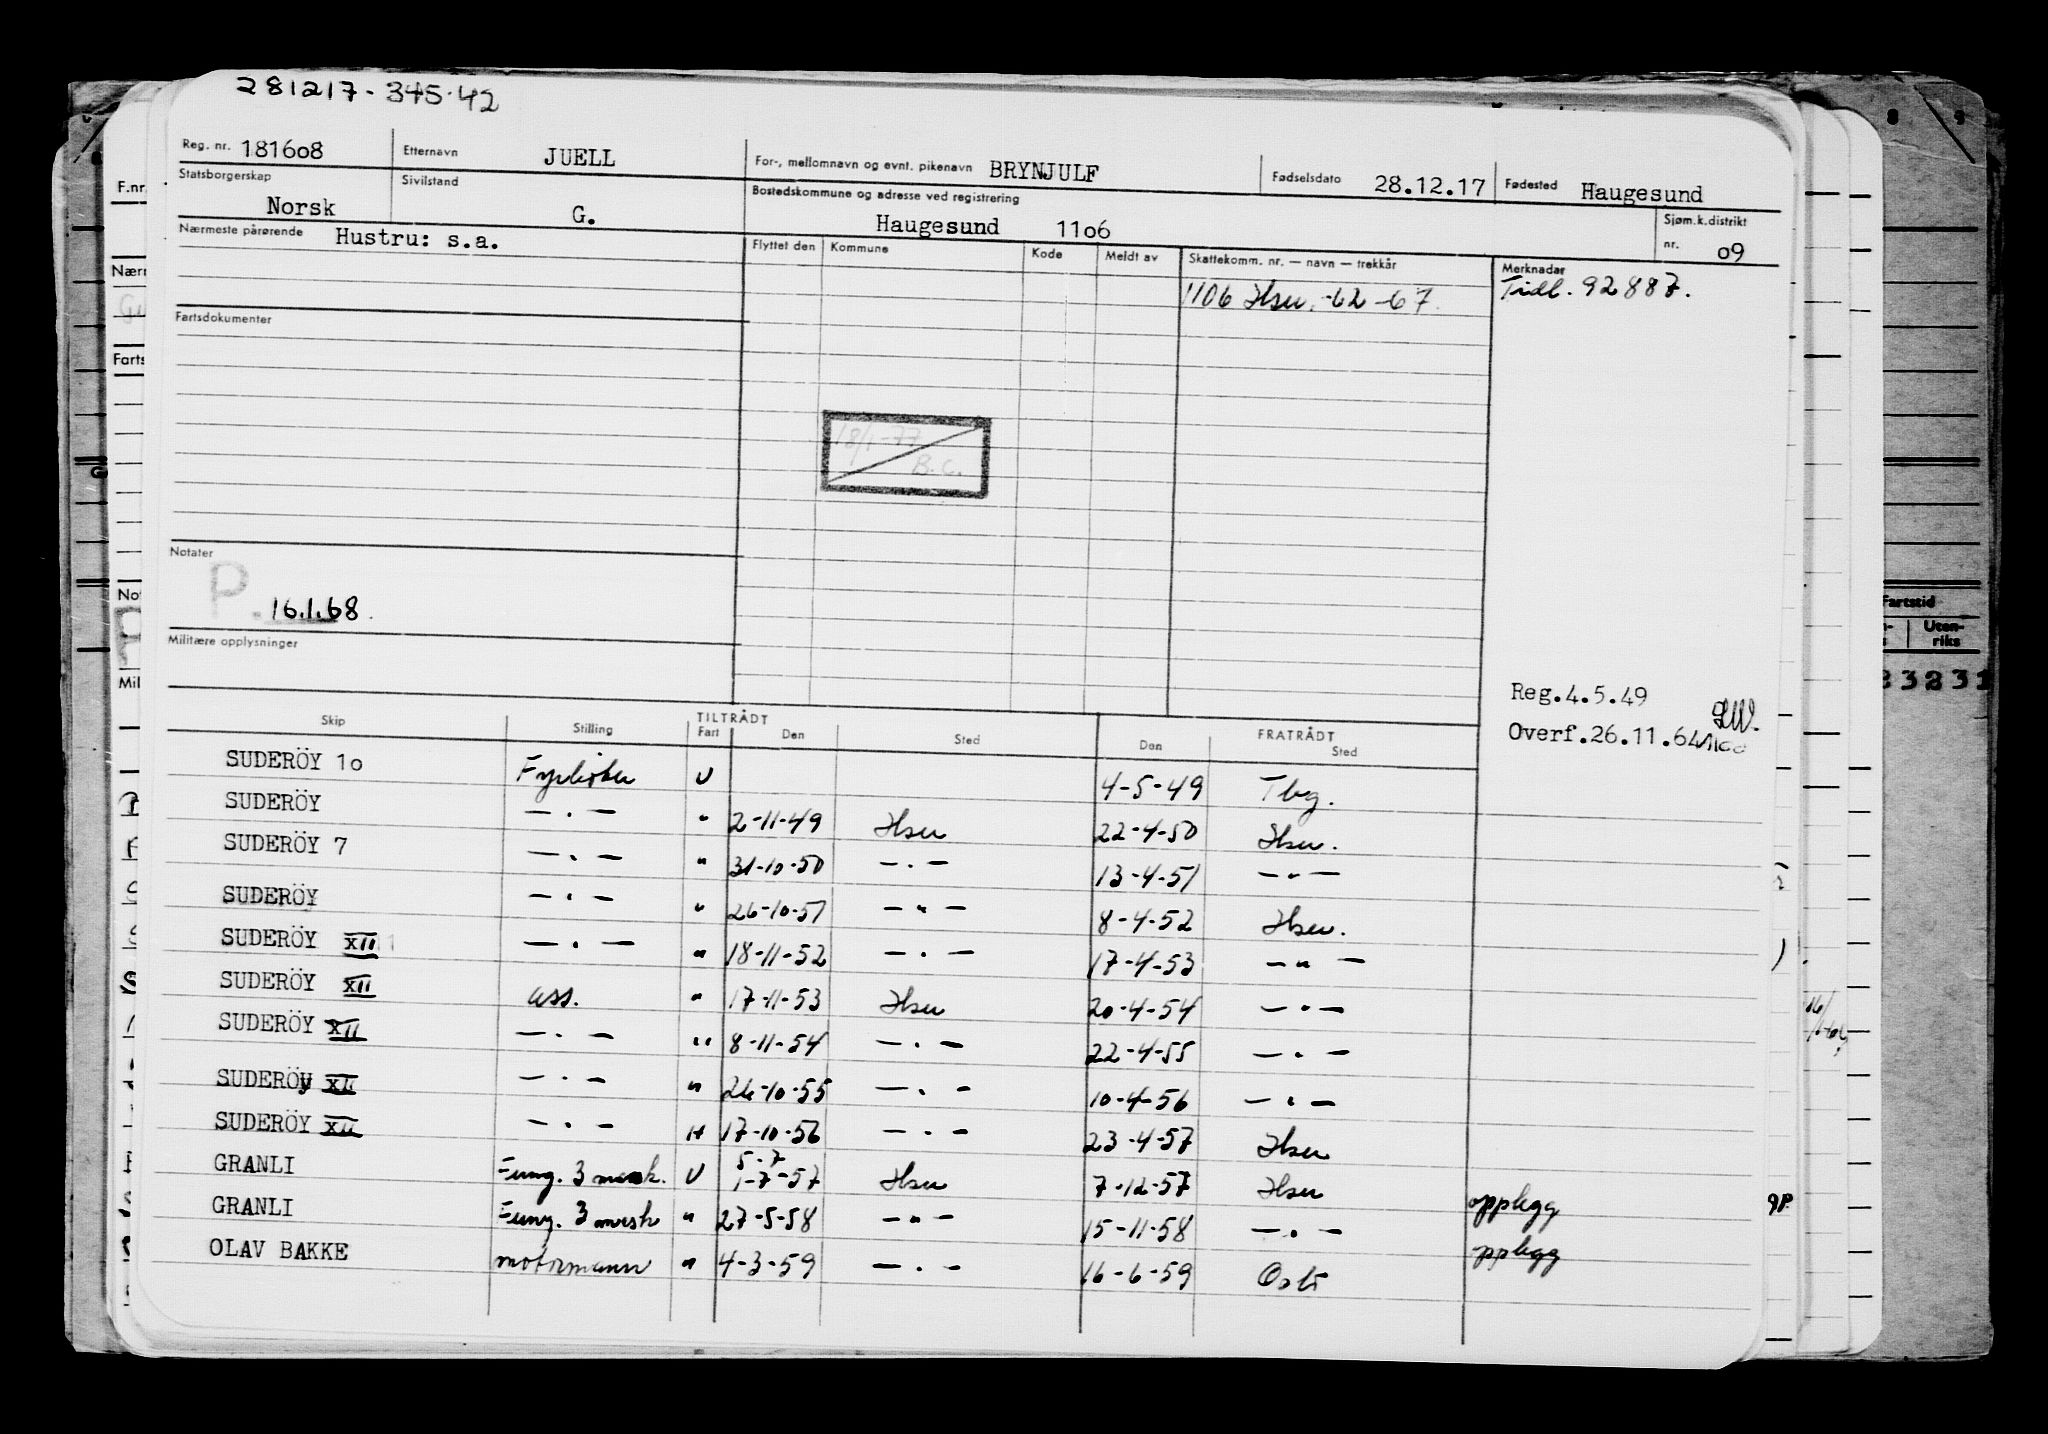 281217-34542
Reg. nr. 181608 Etternavn JUELL For-, mellomnavn og evnt. pikenavn BRYNJULF Fødselsdato 28.12.17 Fødested Haugesund
Statsborgerskap Norsk Sivilstand G. Bostedskommune og adresse ved registrering Haugesund 1106 Sjøm.k.distrikt nr. 09
Nærmeste pårørende Hustru: s.a. Flyttet den Kommune Kode Meldt av Skattekomm. nr. — navn — trekkår Merknader
1106 Hsu. -62 -67. Tidl. 92887.
Fartsdokumenter
18/1-77
B.C.
Notater
P. 16.1.68.
Militære opplysninger
Reg.4.5.49
Overf.26.11.64
Skip Stilling TILTRÅDT Fart Den Sted FRATRÅDT Den Sted
SUDERÖY 10 Fyrbøter U 4-5-49 Tbg.
SUDERÖY —.— " 2-11-49 Hsu 22-4-50 Hsu.
SUDERÖY 7 —.— " 31-10-50 —.— 13-4-51 —"—
SUDERÖY —.— " 26-10-51 —"— 8-4-52 Hsu.
SUDERÖY XII —.— " 18-11-52 —.— 17-4-53 —"—
SUDERÖY XII ass. " 17-11-53 Hsu 20-4-54 —.—
SUDERÖY XII —.— " 8-11-54 —.— 22-4-55 —.—
SUDERÖY XII —.— " 26-10-55 —.— 10-4-56 —.—
SUDERÖY XII —.— " 17-10-56 —.— 23-4-57 Hsu
GRANLI Fung. 3 mask. U 5-7 1-7-57 Hsu 7-12-57 Hsu opplegg
GRANLI Fung. 3 mask " 27-5-58 —"— 15-11-58 —.— opplegg
OLAV BAKKE motormann " 4-3-59 —.— 16-6-59 Oslo
F.nr.
Fartstid
Uten-
riks